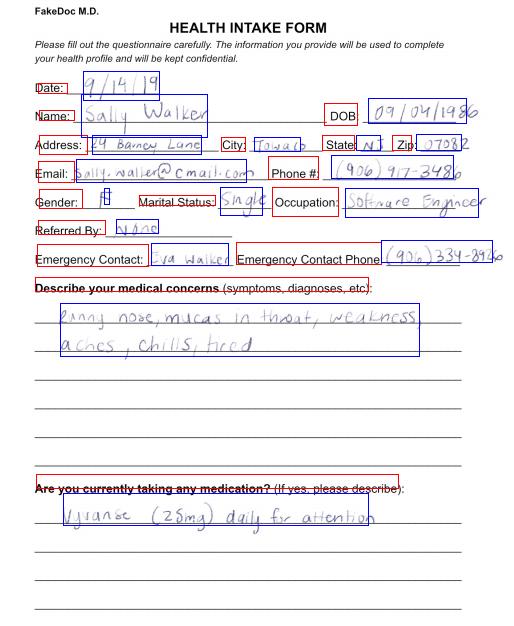 FakeDoc M.D.
HEALTH INTAKE FORM
Please fill out the questionnaire carefully. The information you provide will be used to complete
your health profile and will be kept confidential.
Date: 9/14/19
Name: Sally Walker DOB: 09/04/1986
Address: 24 Barney Lane City: Towaco State: NJ Zip: 07082
Email: Sally.waller@cmail.com Phone #: (906) 917-3486
Gender: F Marital Status: Single Occupation: Software Engineer
Referred By: None
Emergency Contact: Eva Walker Emergency Contact Phone: (906)334-8926
Describe your medical concerns (symptoms, diagnoses, etc):
Runny nose, mucas in throat, weakness,
aches, chills, tired
Are you currently taking any medication? (If yes, please describe):
Vyvanse (25mg) daily for attention